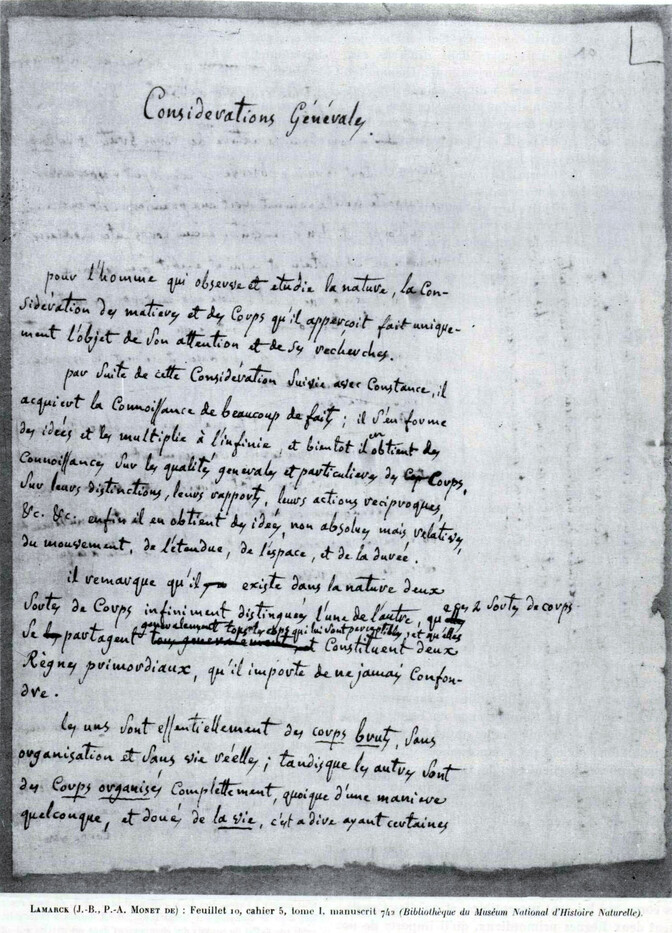 Considerations Générales.
pour l'homme qui observe et etudie la nature, la Con-
sidération des matieres et des Corps qu'il apperçoit fait unique-
ment l'objet de son attention et de ses recherches.
par suite de cette Considération suivie avec Constance, il
acquiert la Connoissance de beaucoup de faits ; il s'en forme
des idées et les multiplie à l'infinie, et bientot il en obtient des
Connoissances sur les qualités generales et particulieres des Corps,
sur leurs distinctions, leurs rapports, leurs actions reciproques,
&c. &c. enfin il en obtient des idées, non absolues mais relatives,
du mouvement, de l'étendue, de l'espace, et de la durée.
il remarque qu'il existe dans la nature deux
sortes de Corps infiniment distingués l'une de l'autre, que ces 2 sortes de corps
generalement tous les corps qui lui sont perceptibles, et qu'elles
se partagent tous generalement et Constituent deux
Règnes primordiaux, qu'il importe de ne jamais Confon-
dre.
les uns sont essentiellement des corps bruts, sans
organisation et sans vie réelles ; tandisque les autres sont
des Corps organisés complettement, quoique d'une maniere
quelconque, et doués de la vie, c'est a dire ayant certaines
LAMARCK (J.-B., P.-A. MONET DE) : Feuillet 10, cahier 5, tome I, manuscrit 742 (Bibliothèque du Muséum National d'Histoire Naturelle).